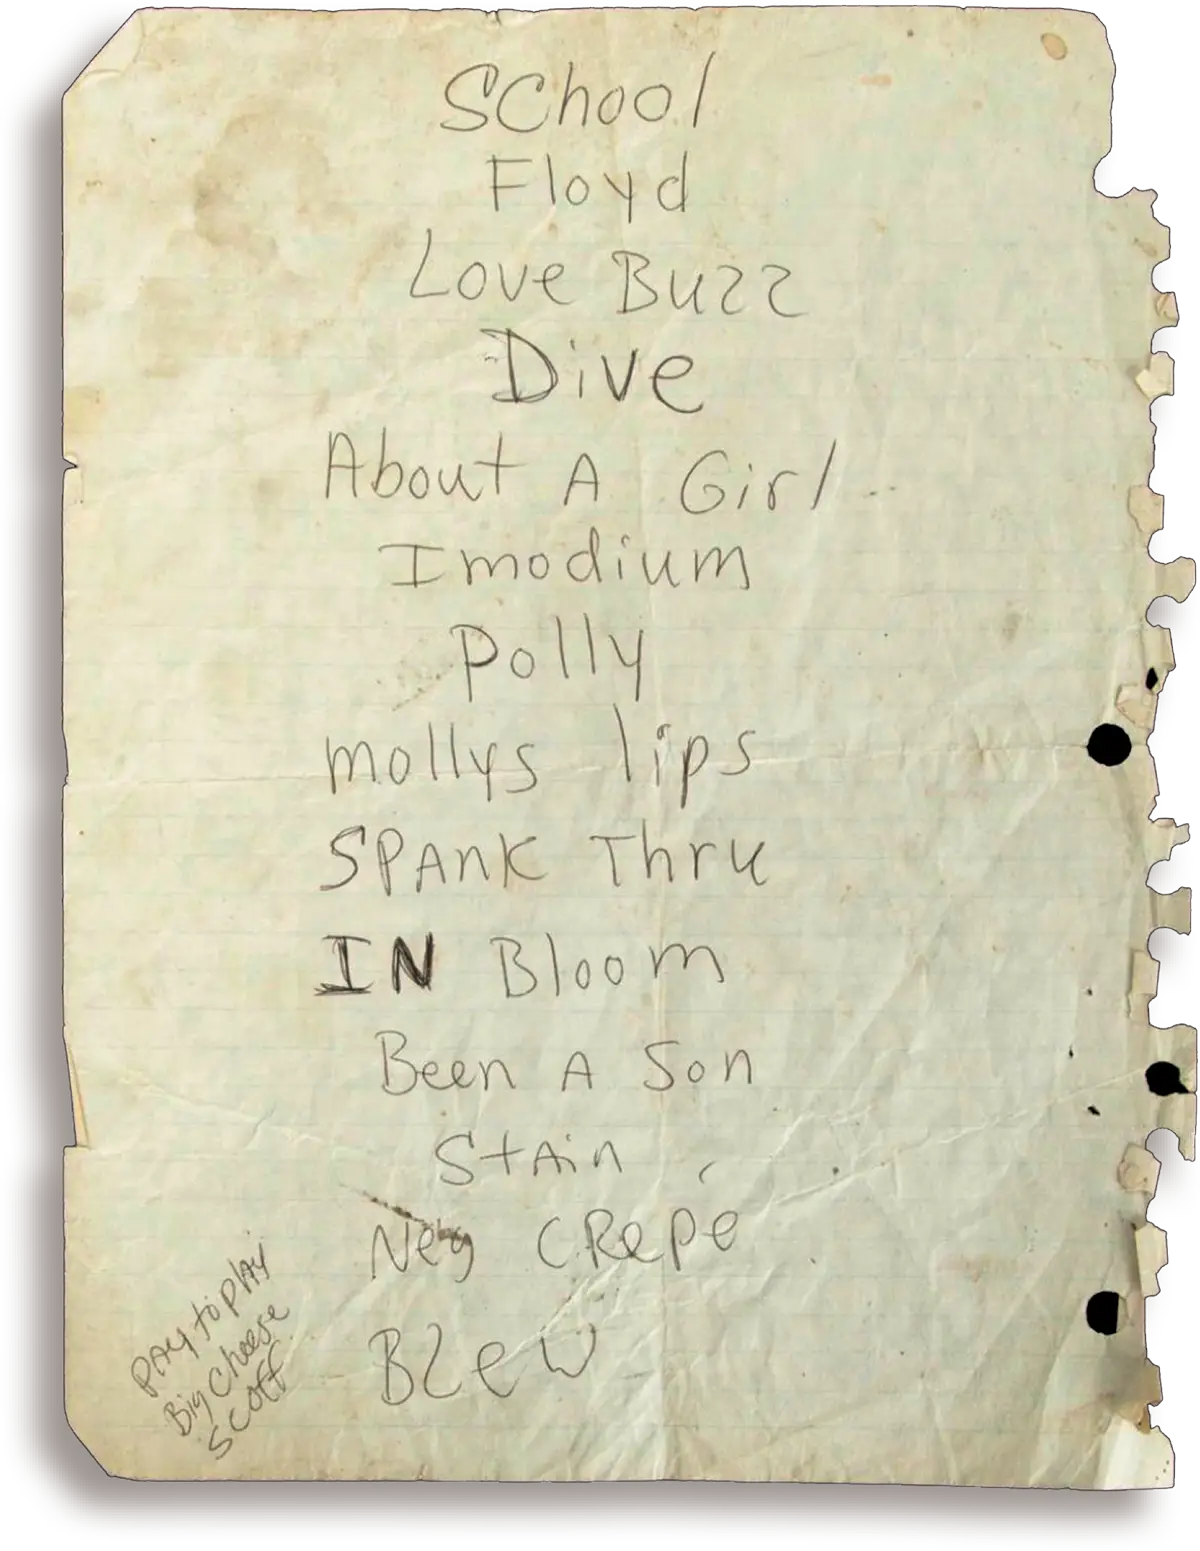 SChool
Floyd
Love Buzz
Dive
About A Girl
Imodium
Polly
mollys lips
SPAnK Thru
IN Bloom
Been A Son
StAin
Neg CRepé
BLew
PAy to plAy
Big Cheese
Scoff